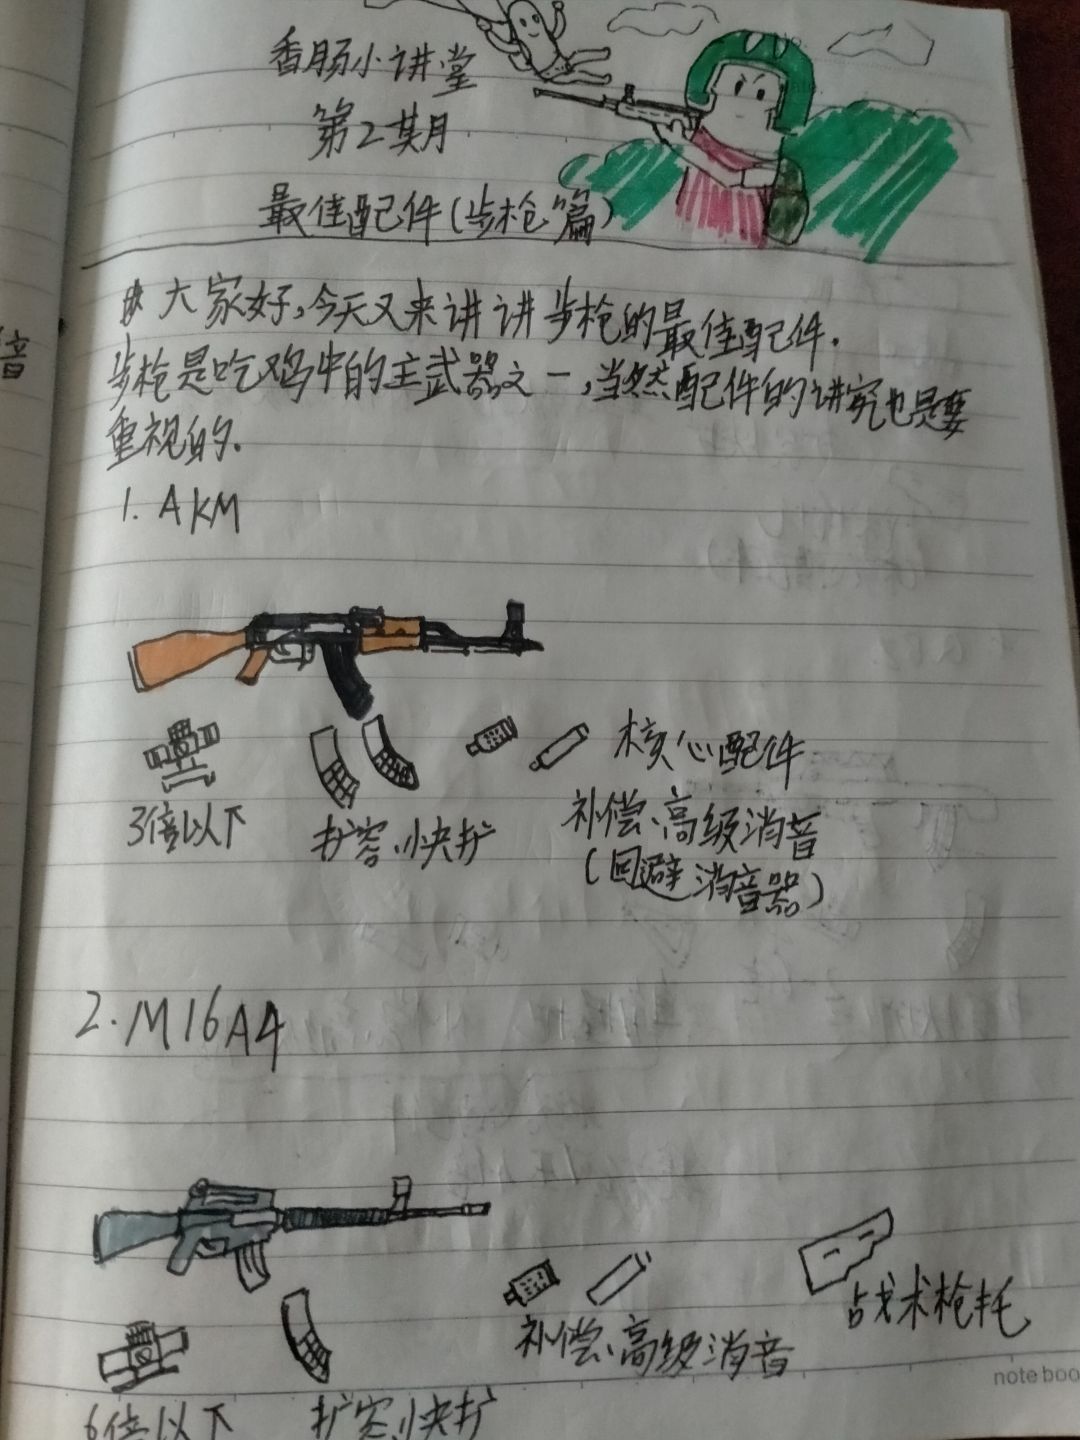 香肠小讲堂
第2期
最佳配件(步枪篇)
大家好,今天又来讲讲步枪的最佳配件.
步枪是吃鸡中的主武器之一,当然配件的讲究也是要
重视的.
1. AKM
核心配件
3倍以下 扩容、快扩 补偿、高级消音
(回避消音器)
2. M16A4
战术枪托
补偿、高级消音
6倍以下 扩容、快扩
note boo
音